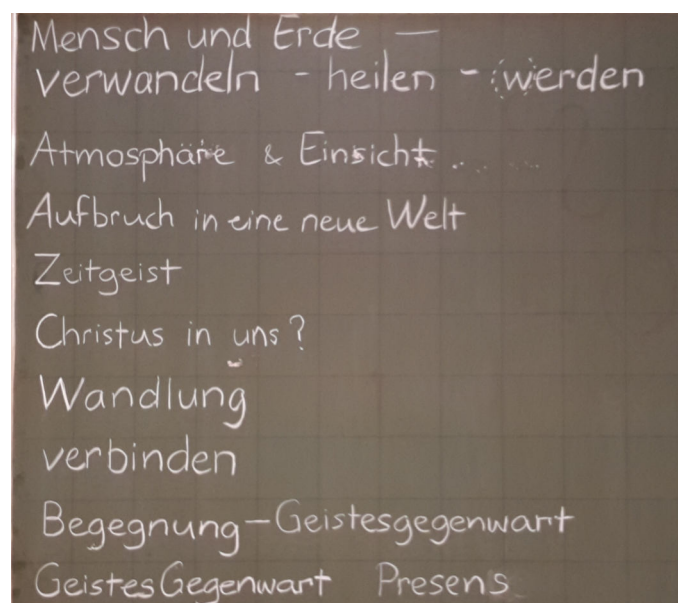 Mensch und Erde —
verwandeln - heilen - werden
Atmosphäre & Einsicht . . . . .
Aufbruch in eine neue Welt
Zeitgeist
Christus in uns?
Wandlung
verbinden
Begegnung - Geistesgegenwart
GeistesGegenwart Presens